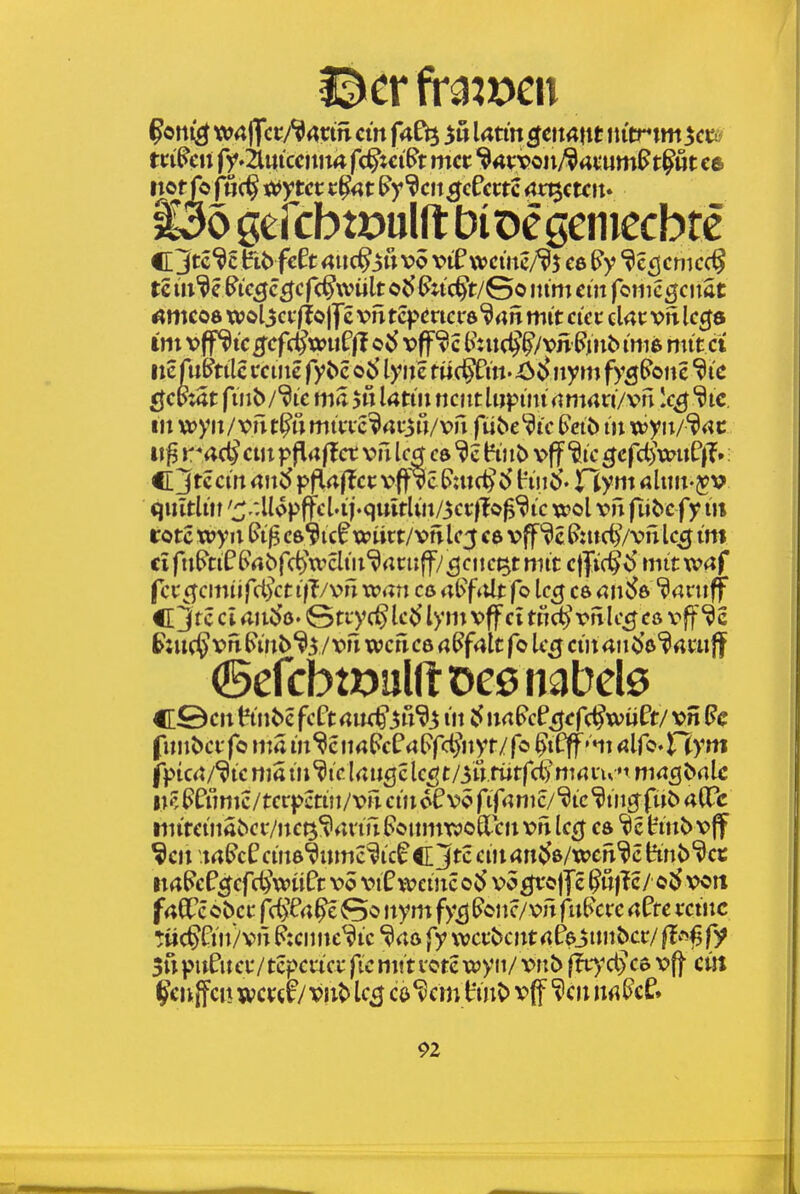 Der frawen
honig wasser/darin ein saltz zu latin genant nitrum zer
tribē sy. Auicenna schreibt mer darvon/darumb thüt es
not so such wyter rhat by den gelertē artzeten.
So geschwulst bi dē gemechte
¶Itē dē kind felt auch zu vō vil weinē/dz es by dē gemech
tē in dē biegē geschwült od' bricht/So nim ein somē genāt
ameos wol zerstossē vn̄ tēperiers dan̄ mit eier clar vn̄ legs
im vff die geschwulst od' vff dē bruch/vn̄ bind ims mit ei
nē subtilē reinē sydē od' lynē tüchlin. Od' nym sygbonē die
gebrāt sind/die mā zu latin nent lupini amari/vn̄ leg die
in wyn/vn̄ thu mirrē darzu/vn̄ südē die beid in wyn/dar
vß mach ein pflaster vn̄ leg es dē kind vff die geschwulst.
¶Itē ein and' pflaster vff dē bruch d' kind'. Nym alun. xv
quītlin cypssel. ij. quītlin/zerstoß die wol vn̄ südē sy in
rotē wyn biß es dick würt/vn̄ leg es vff dē bruch/vn̄ leg im
ei subtil badschwēlin daruff/genetzt mit essich d' mit waſ
ser gemischet ist/vn̄ wan es abfalt so leg es and's daruff
¶Itē ei and's. Strych led' lym vff ei tüch vn̄ leg es vff dē
bruch vn̄ bind dz/vn̄ wen̄ es abfalt so leg ein and's daruff
Geschwulst des nabels
¶Den kindē felt auch zu dz in d' nabel geschwült/vn̄ be
sund'so mā in dē nabel abschnyt/so hilff im also. Nym
spica/die mā in die laugē legt/zu türtsch mariē magdale
nē blümē/terpetin/vn̄ ein öl vō sisamē/die ding sūd alle
miteinād'/netz darin boumwollen vn̄ leg es dē kind vff
den nabel eins dumē dick ¶Itē ein and's/wen̄ dē kind der
nabel geschwült vō vil weinē od' vō grossē hüstē/od' von
fallē od' schlahē So nym sygbonē/vn̄ subere alte reine
tüchlin/vn̄ brenne die das sy werdent als zunder/stoß sy
zu puluer/tēperier sie mit rotē wyn/vnd strych es vff ein
henffen werck/vnd leg es dem kind vff den nabel.
92